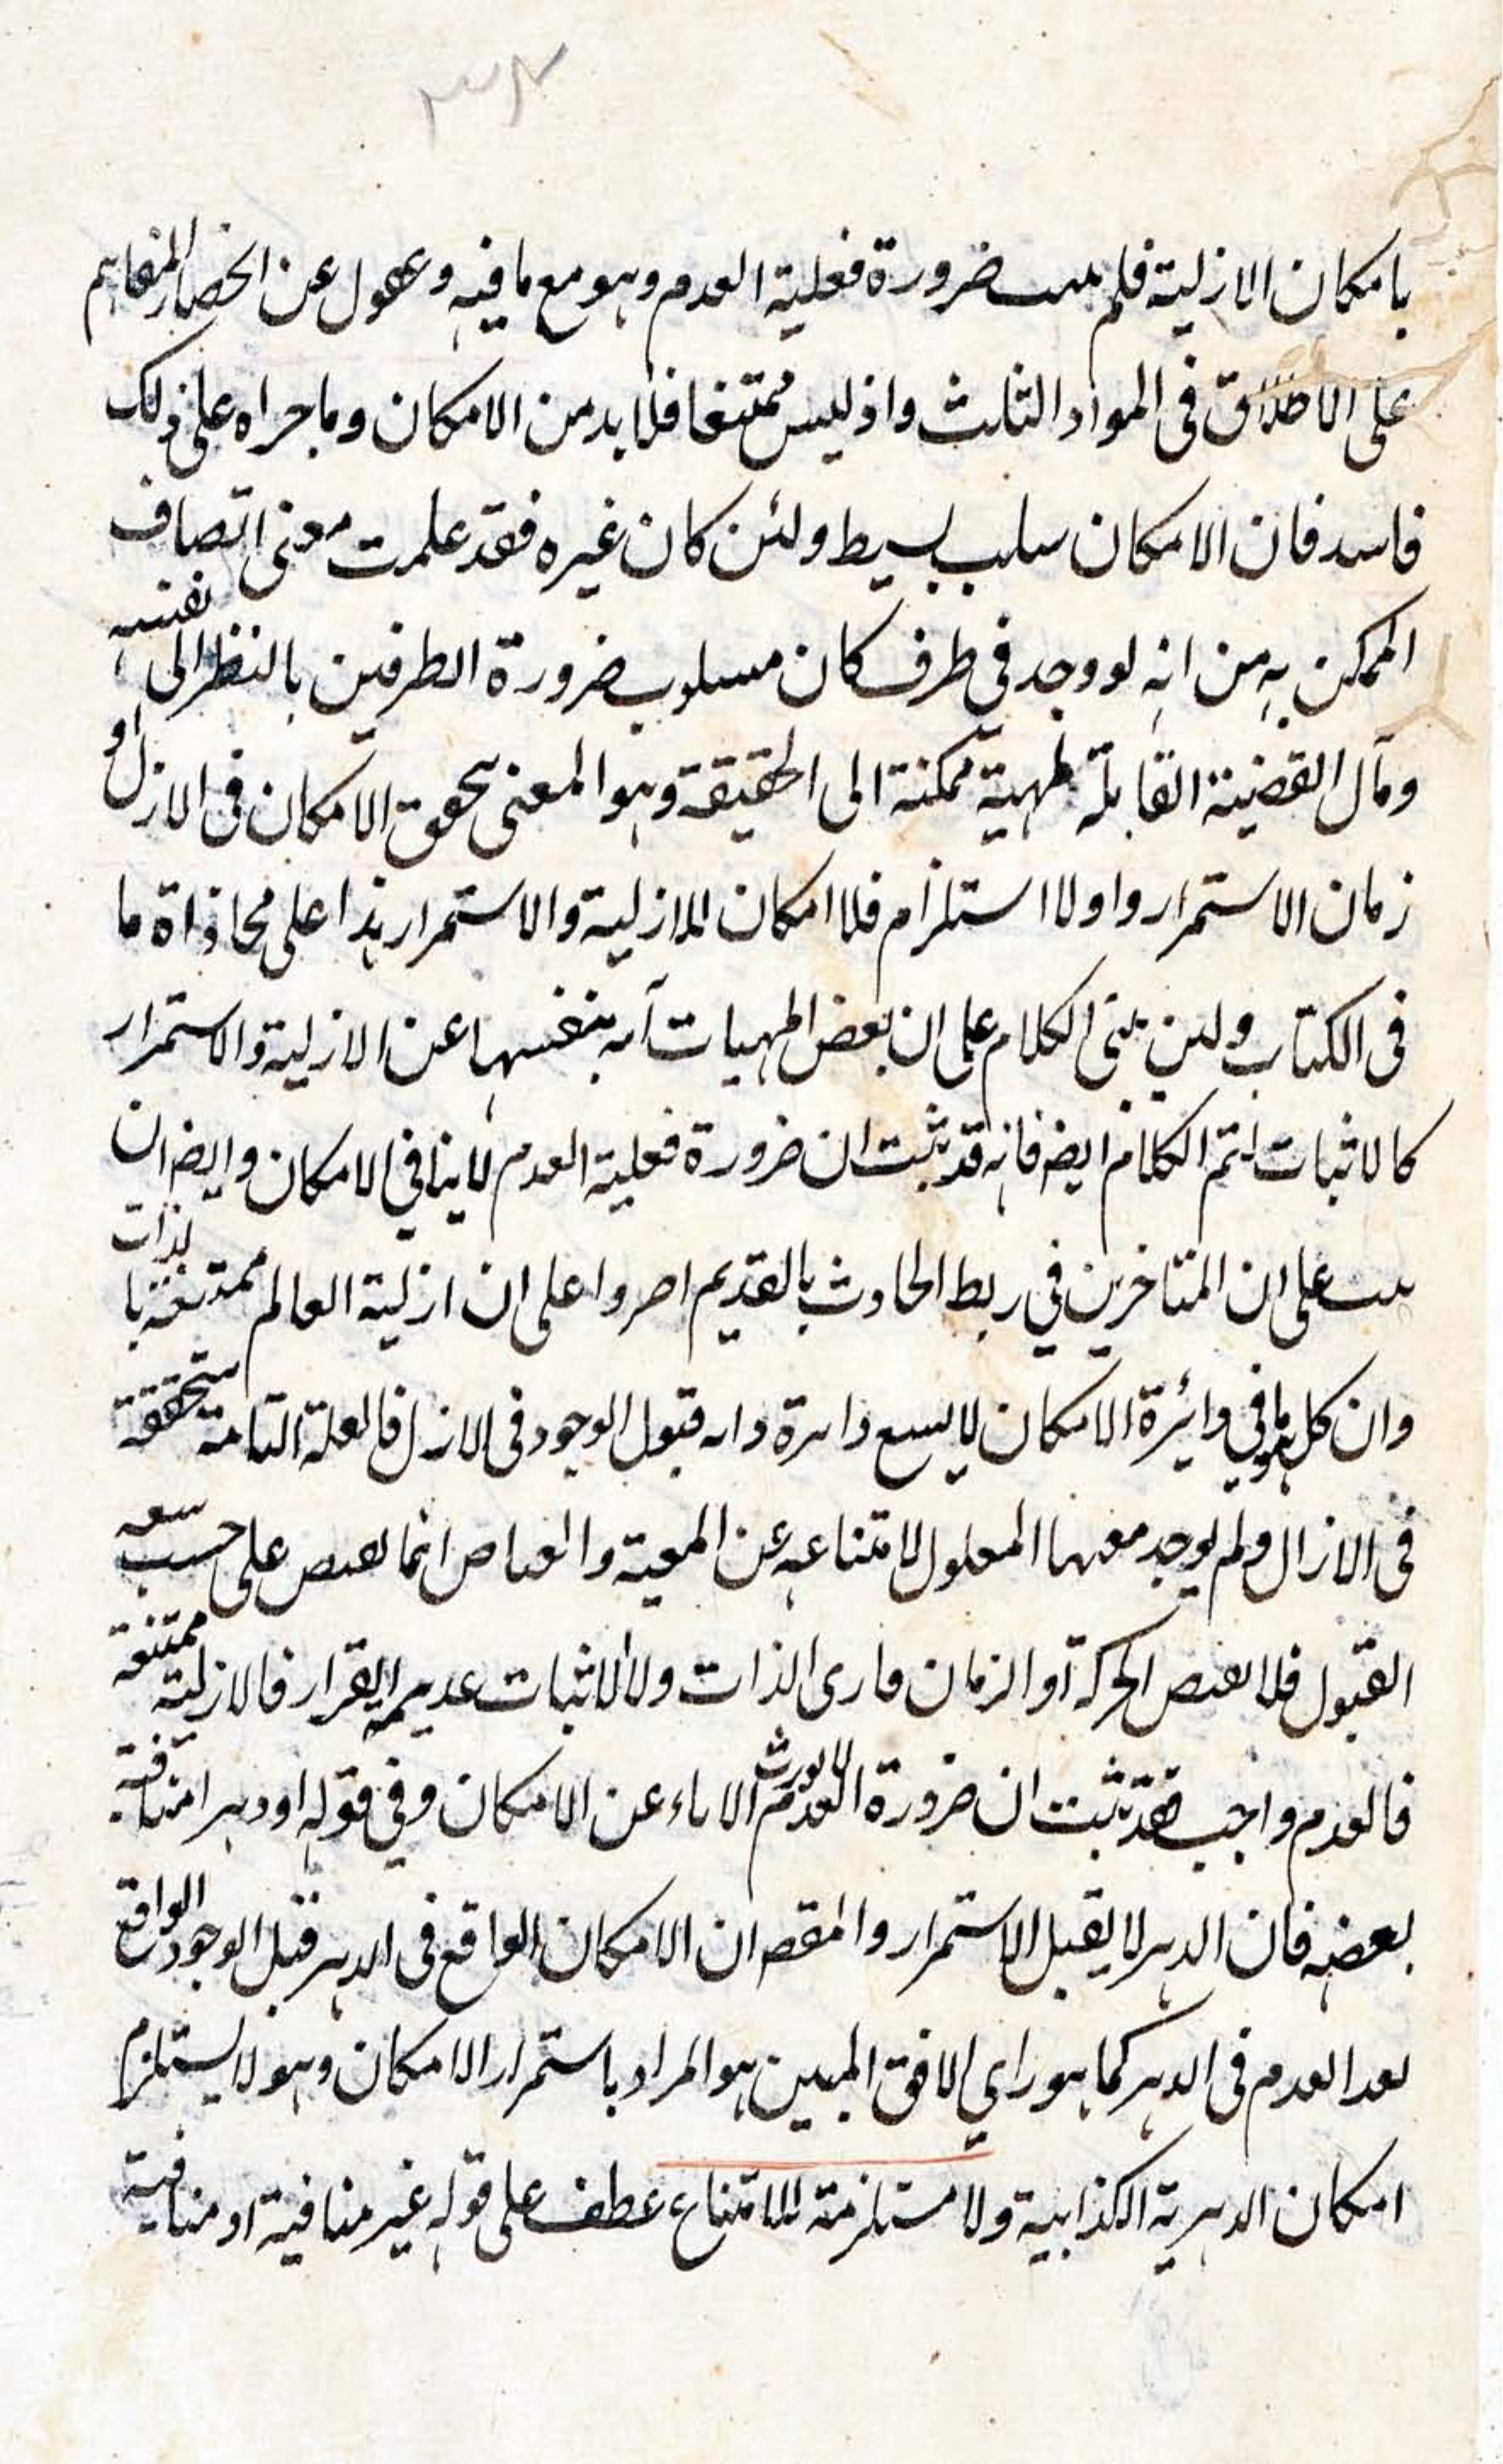 بامكان الازلية فلم يثبت ضرورة فعلية العدم وهو مع ما فيه وعدول عن انحصار المفاهيم
على الاطلاق في المواد الثلث واذ ليس ممتنعا فلا بد من الامكان وما جراه على ذلك
فاسد فان الامكان سلب بسيط ولئن كان غيره فقد علمت معنى اتصاف
الممكن به من انه لو وجد في ظرف كان مسلوب ضرورة الطرفين بالنظر الى نفسه
ومآل القضية القابلة مهية ممكنة الى الحقيقة وهو المعنى بتحقق الامكان في الازل او
زمان الاستمرار واولا استلزام فلا امكان للازلية والاستمرار هذا على محاذاة ما
في الكتاب ولئن بني الكلام على ان بعض المهيات آبية بنفسها عن الازلية والاستمرار
كالاثبات لتم الكلام ايضا فانه قد ثبت ان ضرورة فعلية العدم لا ينافي الامكان وايضا ان
على ان المتاخرين في ربط الحادث بالقديم اصروا على ان ازلية العالم ممتنعة بالذات
وان كل ما هو في دائرة الامكان لا يسع دائرة ذاته قبول الوجود في الازل فالعلة التامة متحققة
في الازال ولم يوجد معها المعلول لامتناعه عن المعية والفياض انما يفيض على حسب سعة
القبول فلا يفيض الحركة او الزمان قاري الذات ولا الاثبات عديمة القرار فالازلية ممتنعة
فالعدم واجب فقد ثبت ان ضرورة العدم لا يورث الاباء عن الامكان وفي قوله او دهرا مناقشة
بعضه فان الدهر لا يقبل الاستمرار والمقصه ان الامكان الواقع في الدهر قبل الوجود الواقع
بعد العدم في الدهر كما هو راي الافق المبين هو المراد باستمرار الامكان وهو لا يستلزم
امكان الدهرية الكذابية ولا مستلزمة للامتناع عطف على قوله غير منافية او منافية